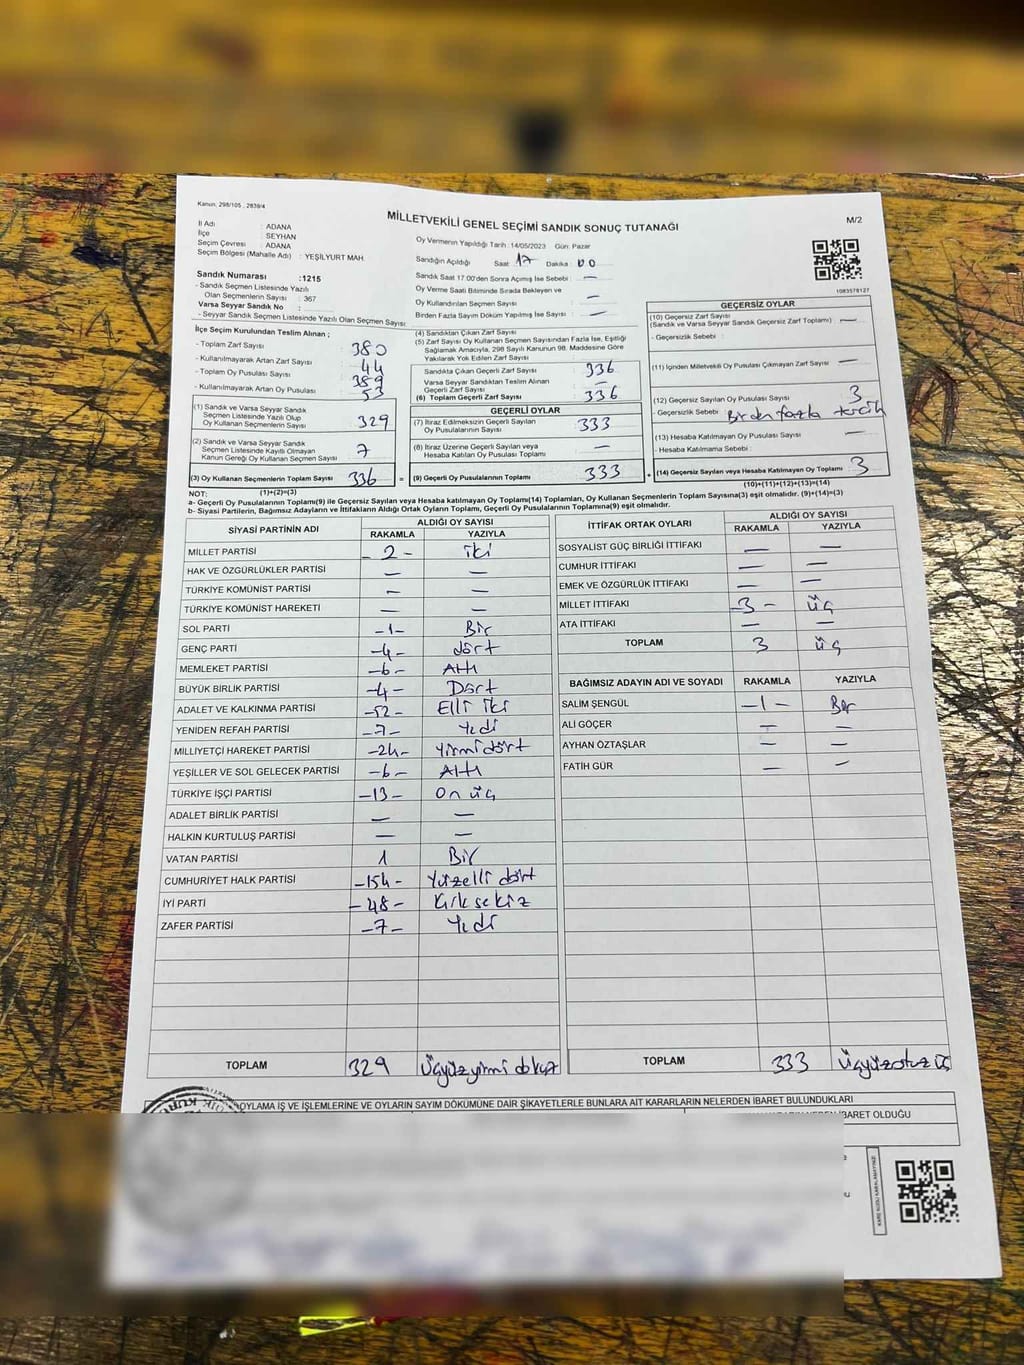 Kanun, 298/105 , 2839/4
MİLLETVEKİLİ GENEL SEÇİMİ SANDIK SONUÇ TUTANAĞI
M/2
İl Adı : ADANA
İlçe : SEYHAN
Seçim Çevresi : ADANA
Seçim Bölgesi (Mahalle Adı) : YEŞİLYURT MAH.
Sandık Numarası :1215
- Sandık Seçmen Listesinde Yazılı
Olan Seçmenlerin Sayısı : 367
Varsa Seyyar Sandık No :
- Seyyar Seçmen Listesinde Yazılı Olan Seçmen Sayısı:
Oy Vermenin Yapıldığı Tarih :14/05/2023 Gün: Pazar
Sandığın Açıldığı Saat : 17 Dakika : 00
Sandık Saat 17.00'den Sonra Açımış İse Sebebi : —
Oy Verme Saati Bitiminde Sırada Bekleyen ve
Oy Kullandırılan Seçmen Sayısı : —
Birden Fazla Sayım Döküm Yapılmış İse Sayısı : —
1083578127
İlçe Seçim Kurulundan Teslim Alınan ;
- Toplam Zarf Sayısı : 380
- Kullanılmayarak Artan Zarf Sayısı : 44
- Toplam Oy Pusulası Sayısı : 389
- Kullanılmayarak Artan Oy Pusulası : 53
(1) Sandık ve Varsa Seyyar Sandık
Seçmen Listesinde Yazılı Olup
Oy Kullanan Seçmenlerin Sayısı : 329
(2) Sandık ve Varsa Seyyar Sandık
Seçmen Listesinde Kayıtlı Olmayan
Kanun Gereği Oy Kullanan Seçmen Sayısı : 7
(3) Oy Kullanan Seçmenlerin Toplam Sayısı : 336
(1)+(2)=(3)
(4) Sandıktan Çıkan Zarf Sayısı
(5) Zarf Sayısı Oy Kullanan Seçmen Sayısından Fazla İse, Eşitliği
Sağlamak Amacıyla, 298 Sayılı Kanunun 98. Maddesine Göre
Yakılarak Yok Edilen Zarf Sayısı
Sandıkta Çıkan Geçerli Zarf Sayısı : 336
Varsa Seyyar Sandıktan Teslim Alınan
Geçerli Zarf Sayısı : —
(6) Toplam Geçerli Zarf Sayısı : 336
GEÇERLİ OYLAR
(7) İtiraz Edilmeksizin Geçerli Sayılan
Oy Pusulalarının Sayısı : 333
(8) İtiraz Üzerine Geçerli Sayılan veya
Hesaba Katılan Oy Pusulası Toplamı : —
= (9) Geçerli Oy Pusulalarının Toplamı : 333
GEÇERSİZ OYLAR
(10) Geçersiz Zarf Sayısı
(Sandık ve Varsa Seyyar Sandık Geçersiz Zarf Toplamı) : —
- Geçersizlik Sebebi :
(11) İçinden Milletvekili Oy Pusulası Çıkmayan Zarf Sayısı : —
(12) Geçersiz Sayılan Oy Pusulası Sayısı : 3
Geçersizlik Sebebi : Birden fazla tercih
(13) Hesaba Katılmayan Oy Pusulası Sayısı : —
- Hesaba Katılmama Sebebi :
+ (14) Geçersiz Sayılan veya Hesaba Katılmayan Oy Toplamı : 3
(10)+(11)+(12)+(13)=(14)
NOT:
a- Geçerli Oy Pusulalarının Toplamı(9) ile Geçersiz Sayılan veya Hesaba katılmayan Oy Toplamı(14) Toplamları, Oy Kullanan Seçmenlerin Toplam Sayısına(3) eşit olmalıdır. (9)+(14)=(3)
b- Siyasi Partilerin, Bağımsız Adayların ve İttifakların Aldığı Ortak Oyların Toplamı, Geçerli Oy Pusulalarının Toplamına(9) eşit olmalıdır.
SİYASİ PARTİNİN ADI ALDIĞI OY SAYISI
RAKAMLA YAZIYLA
MİLLET PARTİSİ - 2 - iki
HAK VE ÖZGÜRLÜKLER PARTİSİ — —
TÜRKİYE KOMÜNİST PARTİSİ — —
TÜRKİYE KOMÜNİST HAREKETİ — —
SOL PARTİ -1- Bir
GENÇ PARTİ -4- dört
MEMLEKET PARTİSİ -6- Altı
BÜYÜK BİRLİK PARTİSİ -4- Dört
ADALET VE KALKINMA PARTİSİ -52- Elli iki
YENİDEN REFAH PARTİSİ -7- Yedi
MİLLİYETÇİ HAREKET PARTİSİ -24- Yirmidört
YEŞİLLER VE SOL GELECEK PARTİSİ -6- Altı
TÜRKİYE İŞÇİ PARTİSİ -13- On üç
ADALET BİRLİK PARTİSİ — —
HALKIN KURTULUŞ PARTİSİ — —
VATAN PARTİSİ 1 Bir
CUMHURİYET HALK PARTİSİ -154- Yüzelli dört
İYİ PARTİ -48- Kırk sekiz
ZAFER PARTİSİ -7- Yedi
TOPLAM 329 Üçyüzyirmi dokuz
İTTİFAK ORTAK OYLARI ALDIĞI OY SAYISI
RAKAMLA YAZIYLA
SOSYALİST GÜÇ BİRLİĞİ İTTİFAKI — —
CUMHUR İTTİFAKI — —
EMEK VE ÖZGÜRLÜK İTTİFAKI — —
MİLLET İTTİFAKI -3- üç
ATA İTTİFAKI — —
TOPLAM 3 üç
BAĞIMSIZ ADAYIN ADI VE SOYADI RAKAMLA YAZIYLA
SALİM ŞENGÜL -1- Bir
ALİ GÖÇER — —
AYHAN ÖZTAŞLAR — —
FATİH GÜR — —
TOPLAM 333 Üçyüzotuz üç
OYLAMA İŞ VE İŞLEMLERİNE VE OYLARIN SAYIM DÖKÜMÜNE DAİR ŞİKAYETLERLE BUNLARA AİT KARARLARIN NELERDEN İBARET BULUNDUKLARI
İBARET OLDUĞU